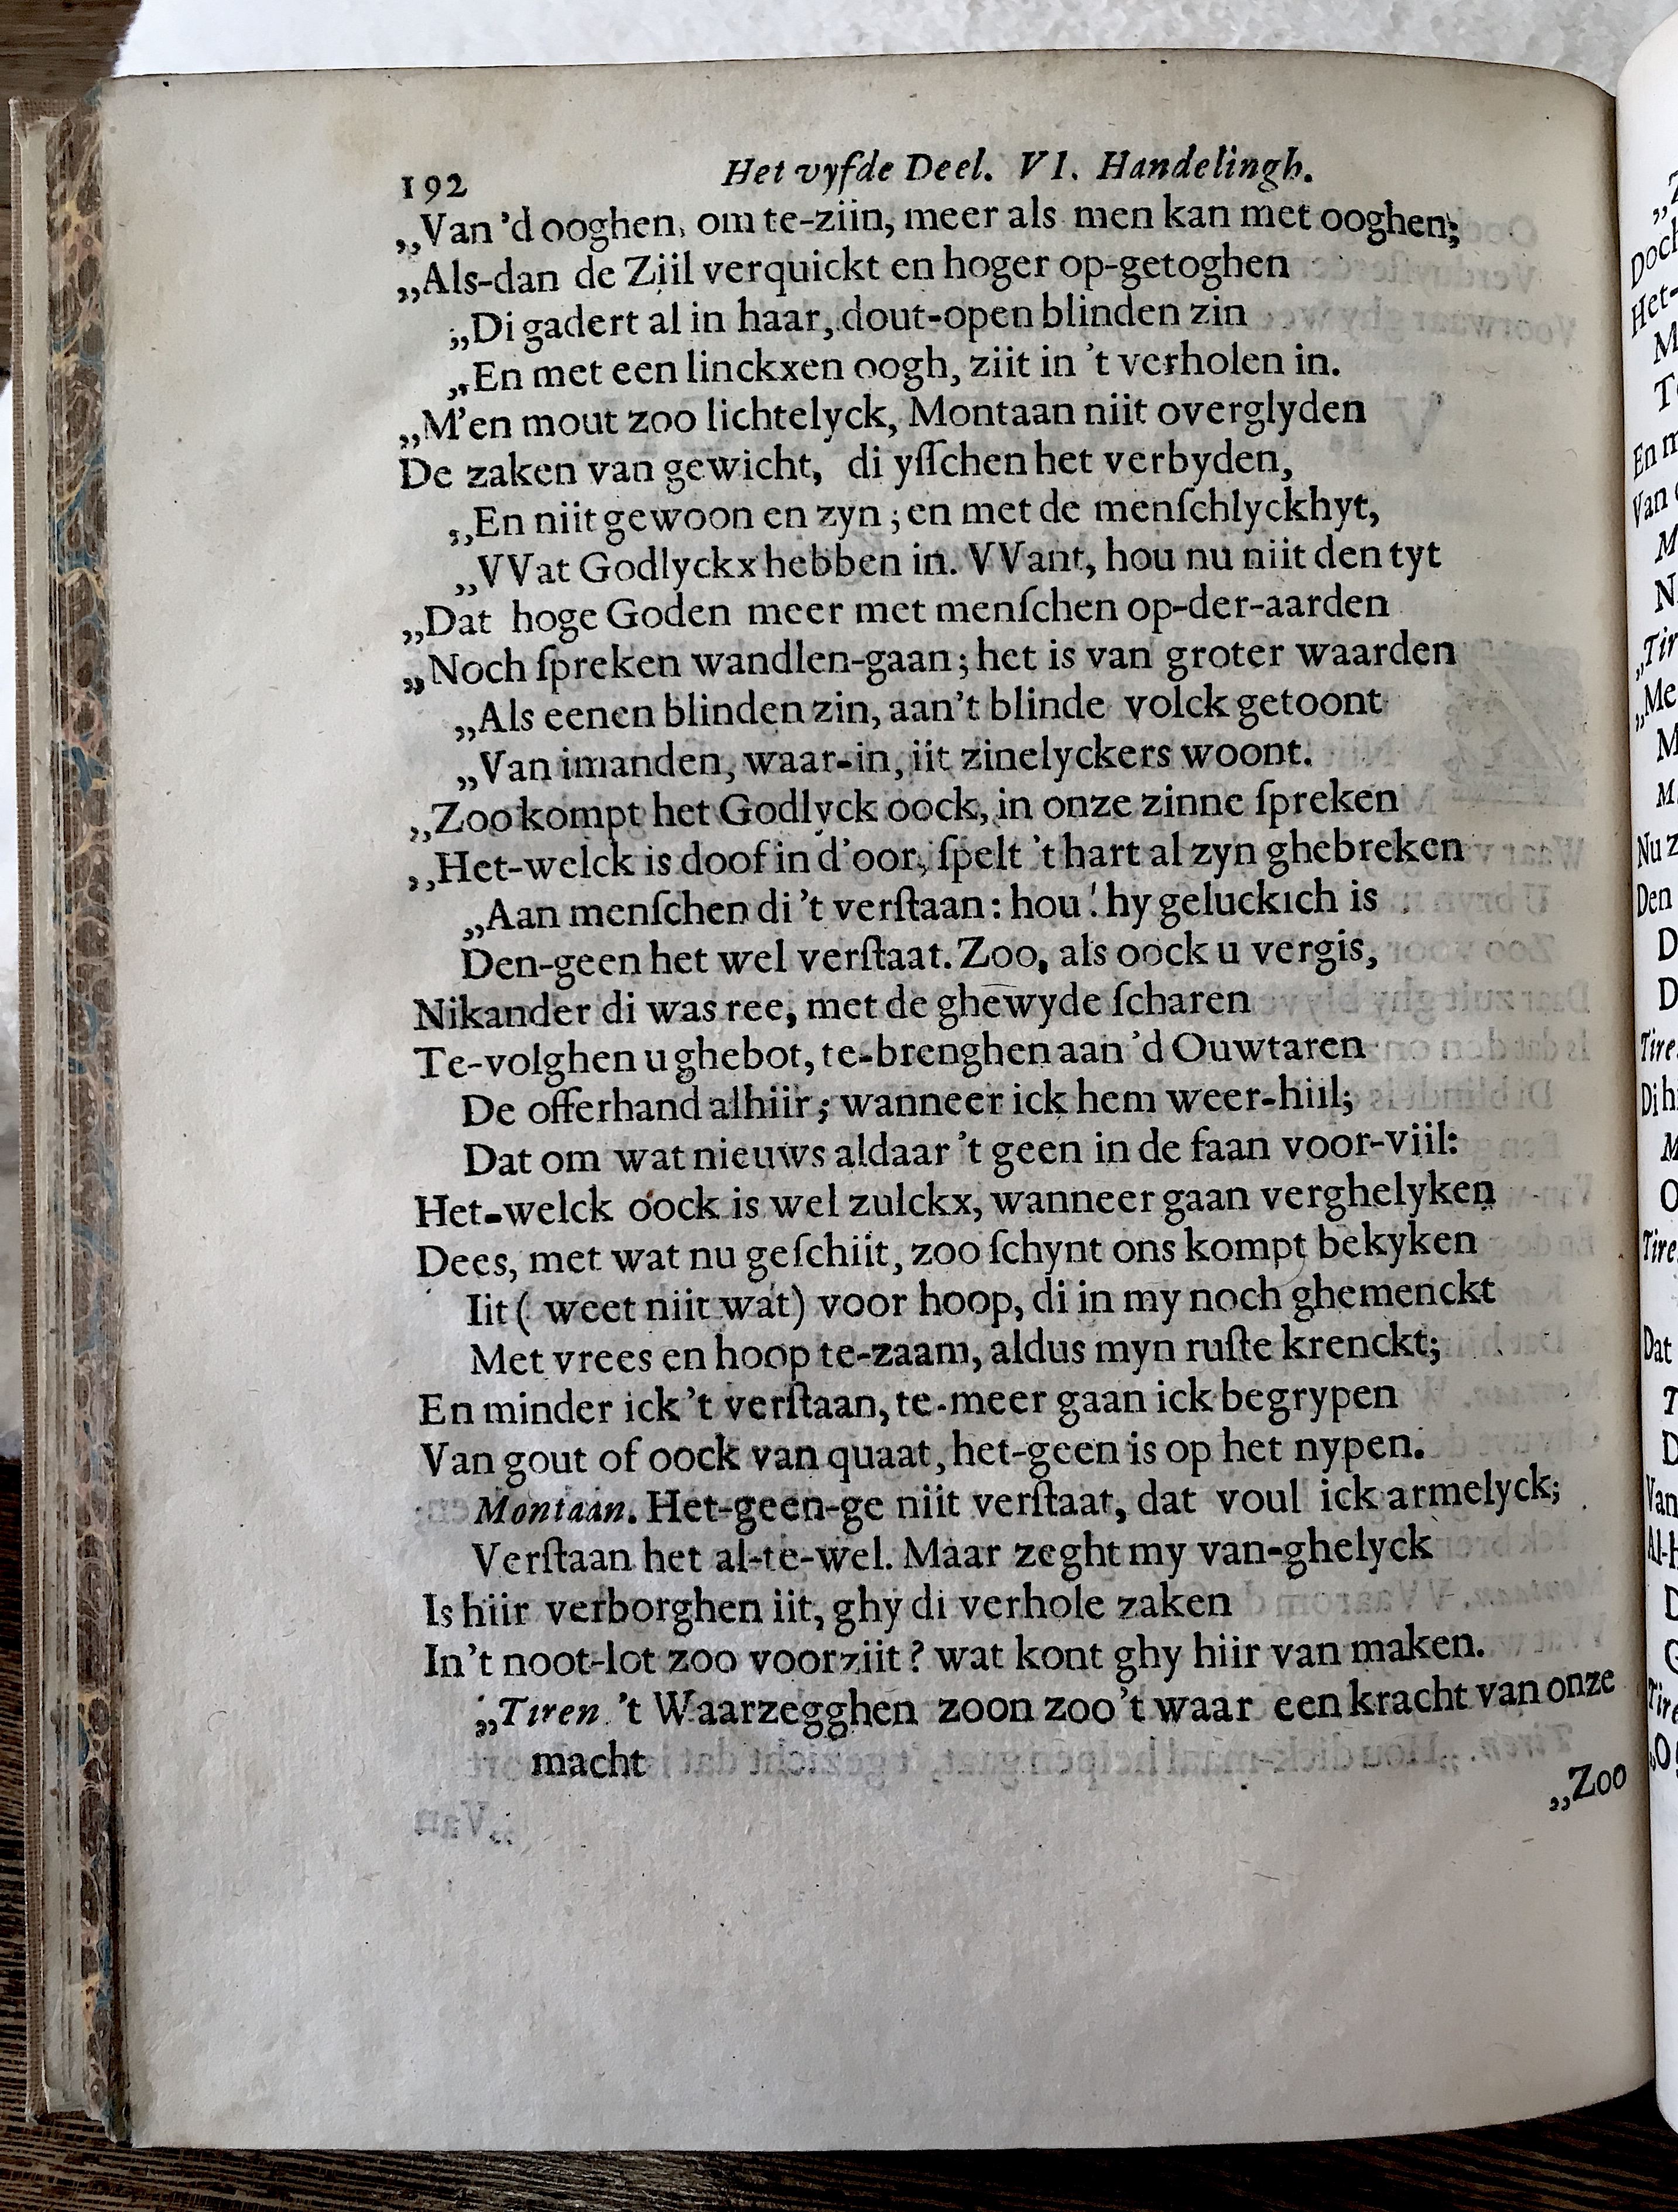 192 Het vyfde Deel. VI. Handelingh.
„Van 'd ooghen, om te-ziin, meer als men kan met ooghen;
„Als-dan de Ziil verquickt en hoger op-getoghen
„Di gadert al in haar, dout-open blinden zin
„En met een linckxen oogh, ziit in 't verholen in.
„M'en mout zoo lichtelyck, Montaan niit overglyden
De zaken van gewicht, di yſſchen het verbyden,
„En niit gewoon en zyn; en met de menſchlyckhyt,
„VVat Godlyckx hebben in. VVant, hou nu niit den tyt
„Dat hoge Goden meer met menſchen op-der-aarden
„Noch ſpreken wandlen-gaan; het is van groter waarden
„Als eenen blinden zin, aan't blinde volck getoont
„Van imanden, waar-in, iit zinelyckers woont.
„Zoo kompt het Godlyck oock, in onze zinne ſpreken
„Het-welck is doof in d'oor, ſpelt 't hart al zyn ghebreken
„Aan menſchen di 't verſtaan: hou! hy geluckich is
Den-geen het wel verſtaat. Zoo, als oock u vergis,
Nikander di was ree, met de ghewyde ſcharen
Te-volghen u ghebot, te-brenghen aan 'd Ouwtaren
De offerhand alhiir; wanneer ick hem weer-hiil;
Dat om wat nieuws aldaar 't geen in de faan voor-viil:
Het-welck oock is wel zulckx, wanneer gaan verghelyken
Dees, met wat nu geſchiit, zoo ſchynt ons kompt bekyken
Iit ( weet niit wat) voor hoop, di in my noch ghemenckt
Met vrees en hoop te-zaam, aldus myn ruſte krenckt;
En minder ick 't verſtaan, te-meer gaan ick begrypen
Van gout of oock van quaat, het-geen is op het nypen.
Montaan. Het-geen-ge niit verſtaat, dat voul ick armelyck;
Verſtaan het al-te-wel. Maar zeght my van-ghelyck
Is hiir verborghen iit, ghy di verhole zaken
In't noot-lot zoo voorziit? wat kont ghy hiir van maken.
„Tiren. 't Waarzegghen zoon zoo't waar een kracht van onze
macht
„Zoo